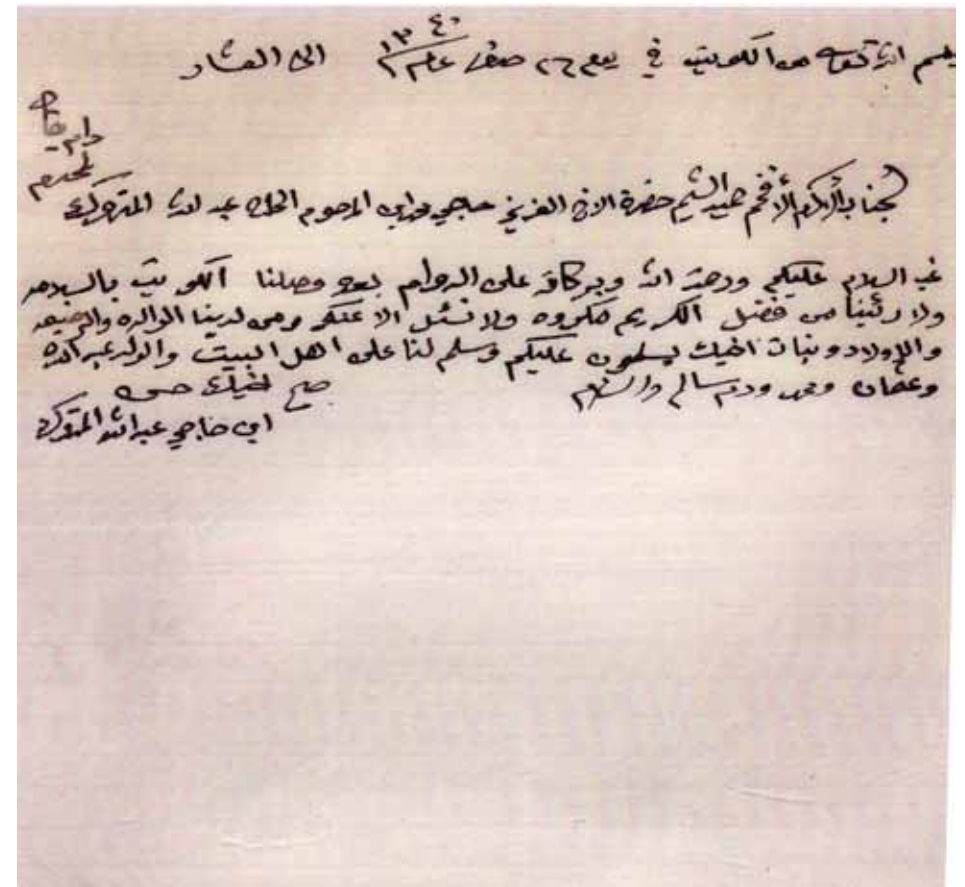 بسم الله تعالى من الكويت في يوم ٢٦ صفر عام ١٣٤٠ الى العشار
دام بقاه
المحترم
لجناب الأكرم الأفخم حميد الشيم حضرة الاخ العزيز حاجي ابن المرحوم الحاج عبد الله المتروك
غب السلام عليكم ورحمة الله وبركاته على الدوام بعده وصلنا الكويت بالسلامه
ولا رئينا من فضل الكريم مكروه ولا نسئل الا عنكم ومن لدينا الوالده والرضيعه
والاولاد وبنات اخيك يسلمون عليكم وسلم لنا على اهل البيت والولد عبد الله
وعثمان ومحمد ودم سالم والسلام
صح اخيك حسن
ابن حاجي عبد الله المتروك